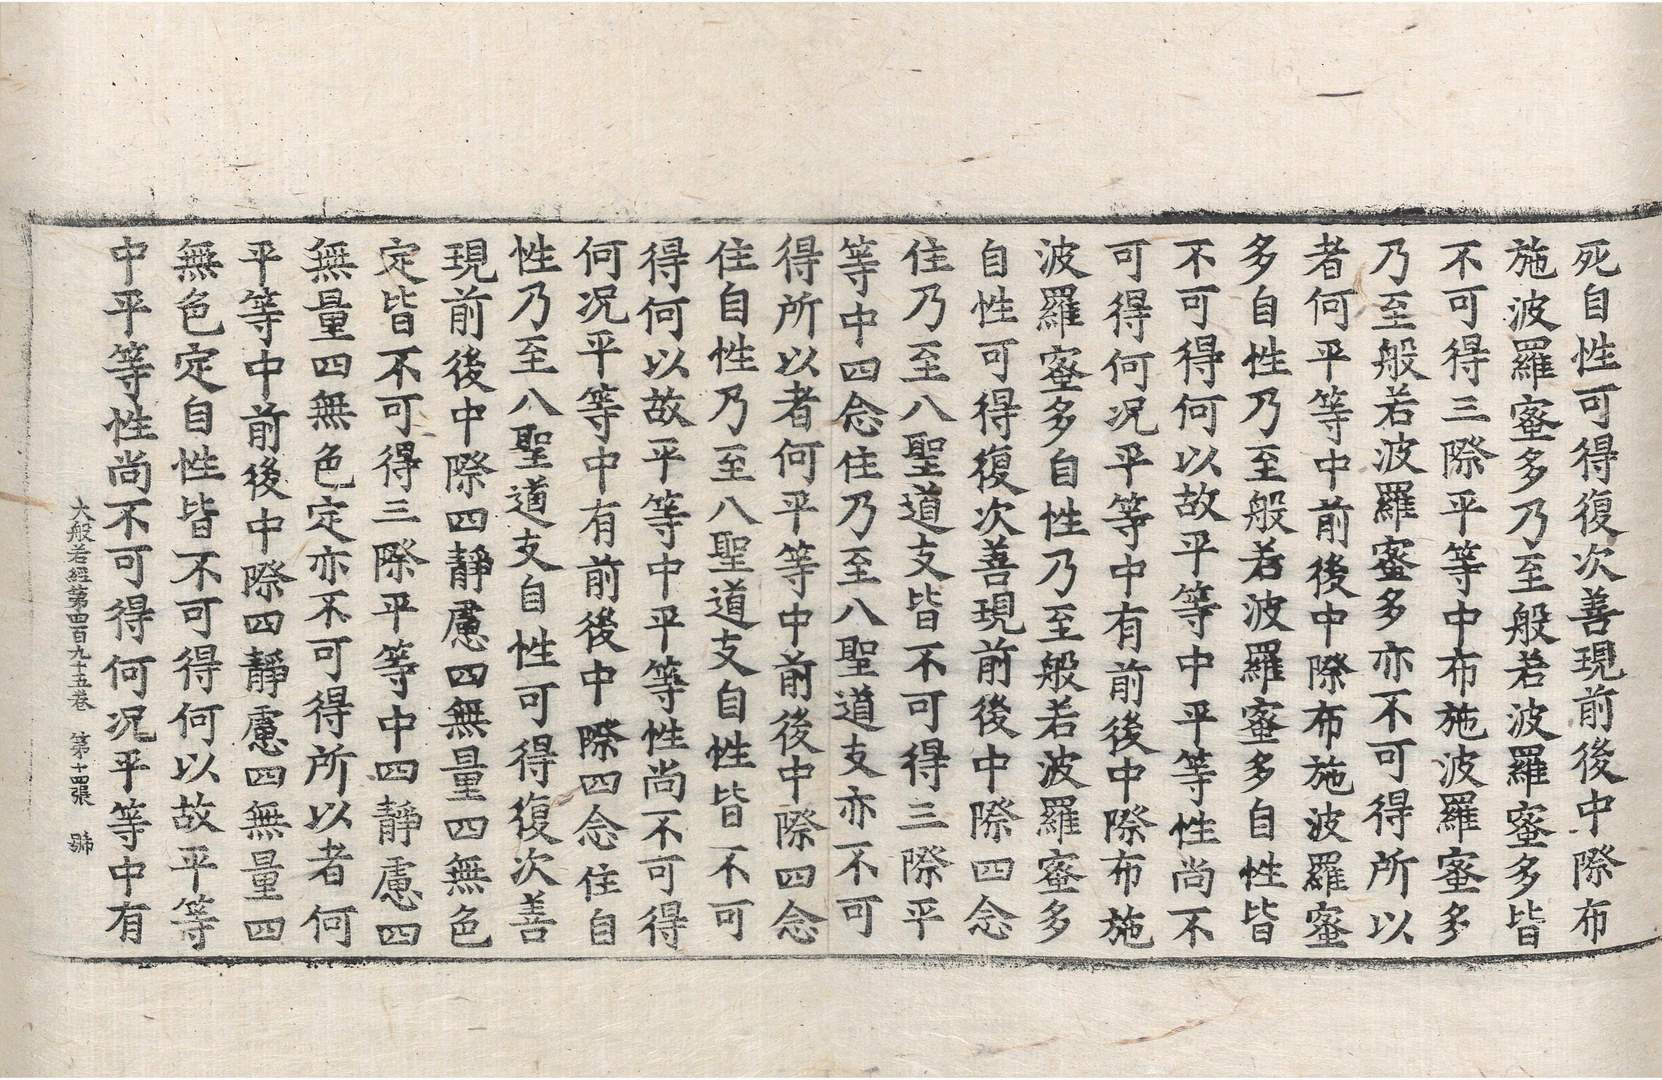 死自性可得復次善現前後中際布
施波羅蜜多乃至般若波羅蜜多皆
不可得三際平等中布施波羅蜜多
乃至般若波羅蜜多亦不可得所以
者何平等中前後中際布施波羅蜜
多自性乃至般若波羅蜜多自性皆
不可得何以故平等中平等性尚不
可得何況平等中有前後中際布施
波羅蜜多自性乃至般若波羅蜜多
自性可得復次善現前後中際四念
住乃至八聖道支皆不可得三際平
等中四念住乃至八聖道支亦不可
得所以者何平等中前後中際四念
住自性乃至八聖道支自性皆不可
得何以故平等中平等性尚不可得
何况平等中有前後中際四念住自
性乃至八聖道支自性可得復次善
現前後中際四靜慮四無量四無色
定皆不可得三際平等中四靜慮四
無量四無色定亦不可得所以者何
平等中前後中際四靜慮四無量四
無色定自性皆不可得何以故平等
中平等性尚不可得何况平等中有
大般若經第四百九十五卷 第十四張